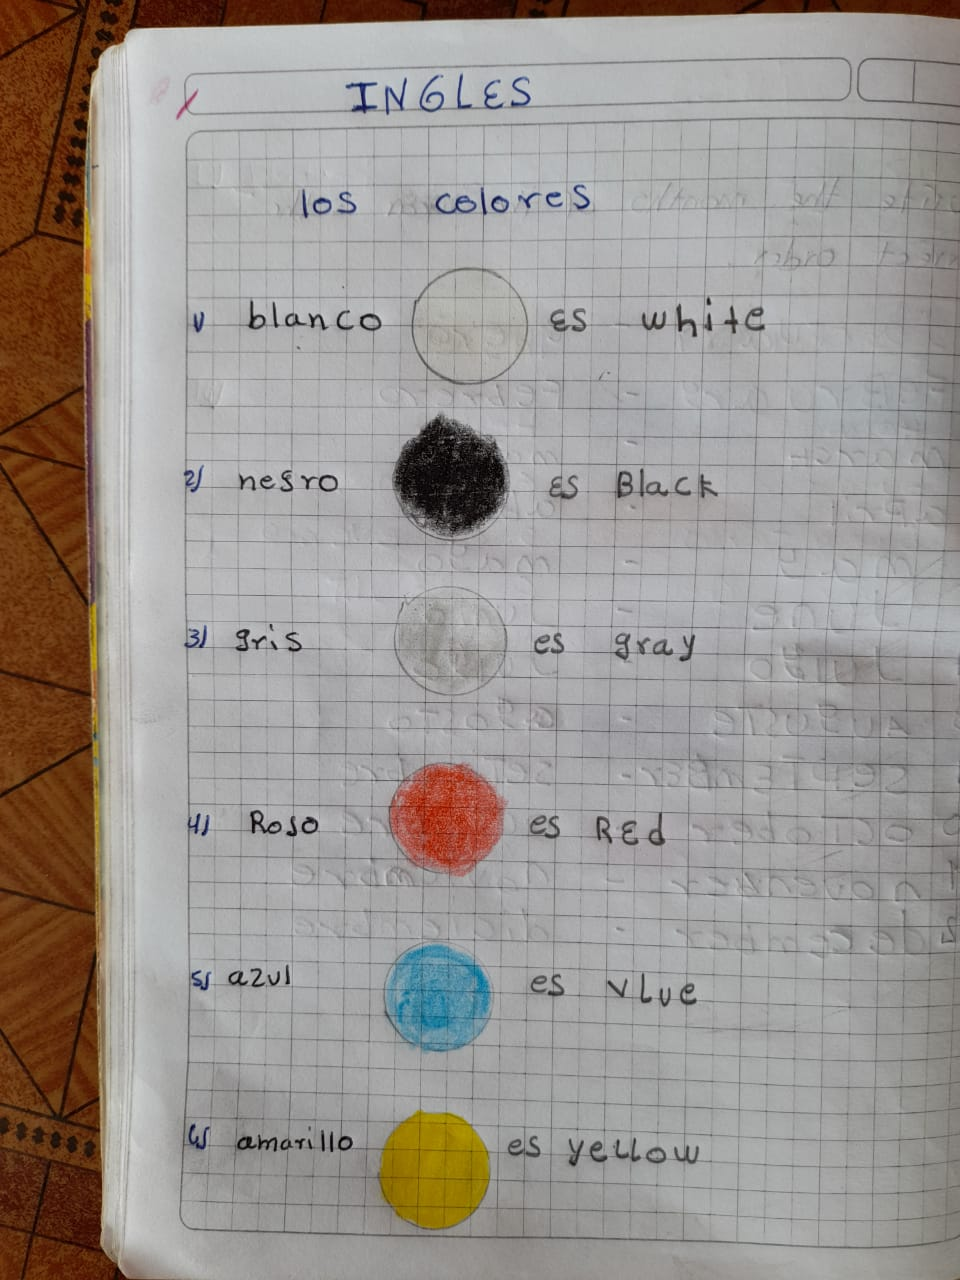 INGLES
los colores
1) blanco es white
2) negro es Black
3) gris es gray
4) Roso es REd
5) azul es vLue
6) amarillo es yellow